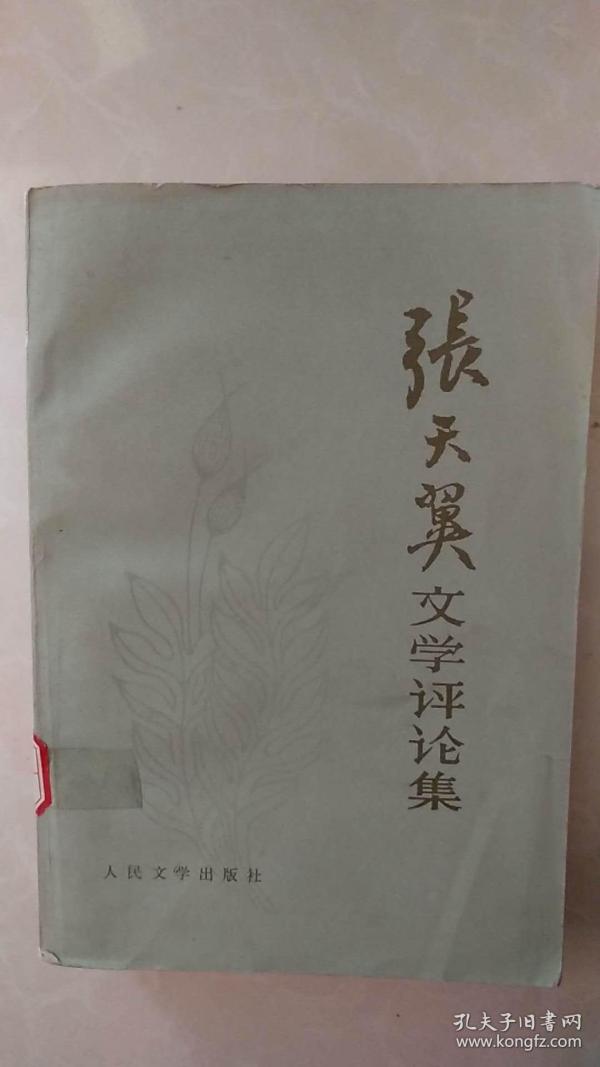 張天翼
文学评论集
人民文学出版社
孔夫子旧书网
www.kongfz.com